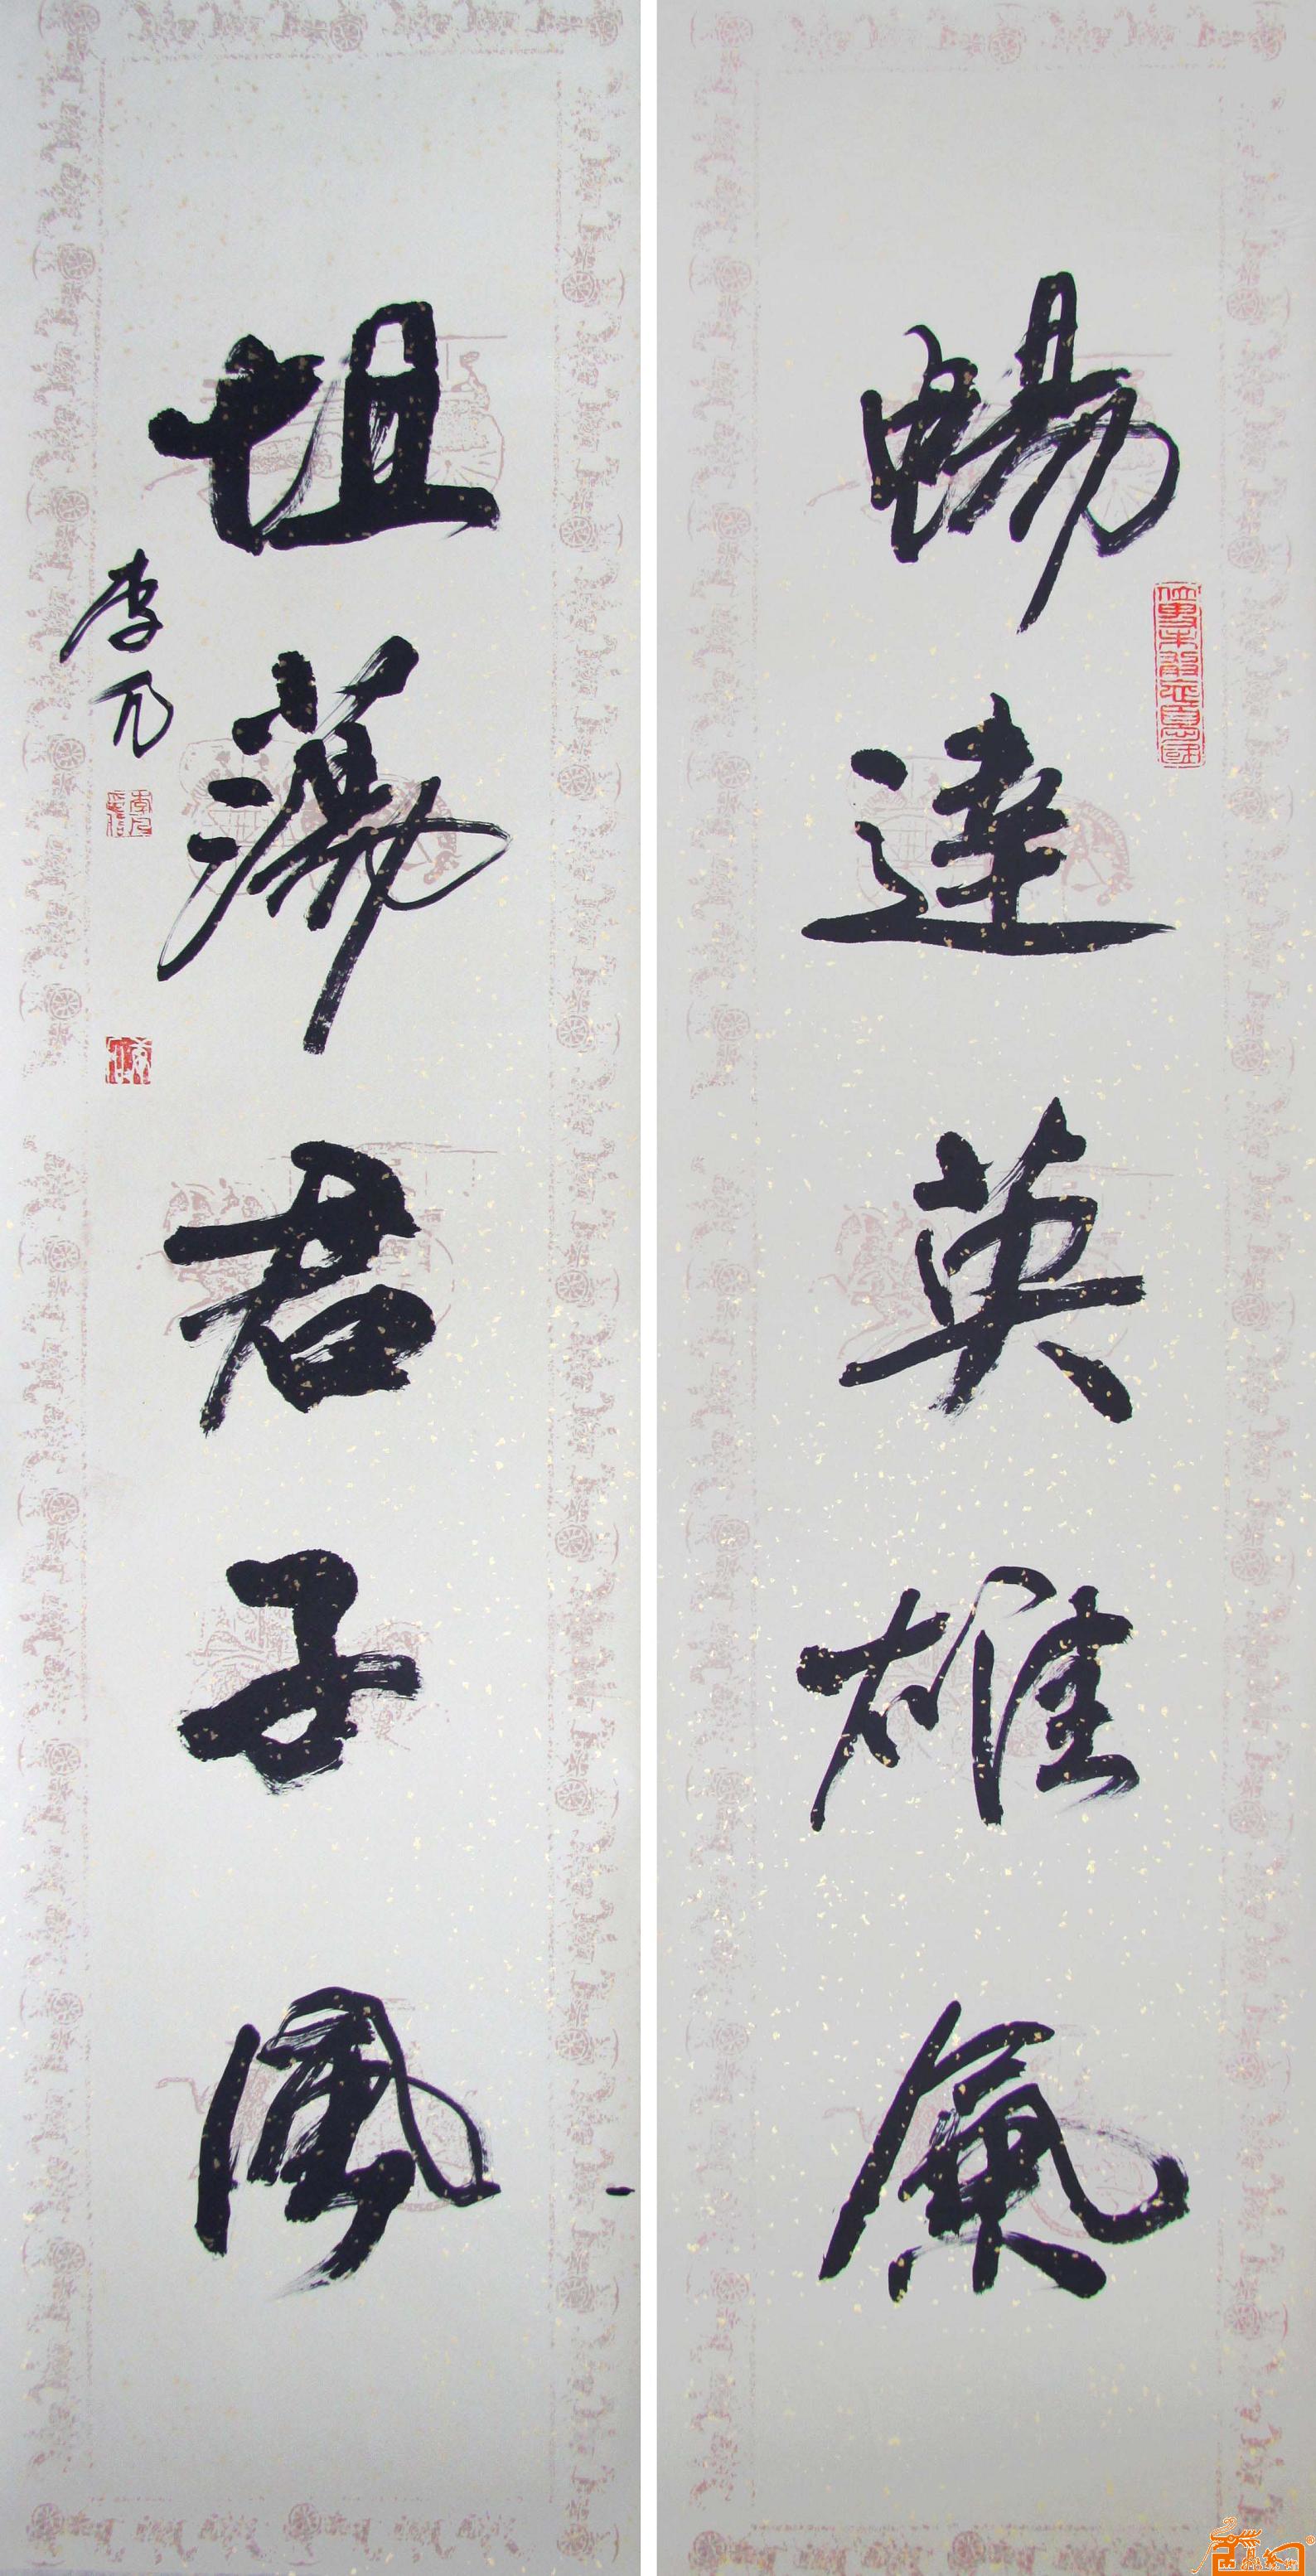 暢達英雄氣
坦蕩君子風
李凡